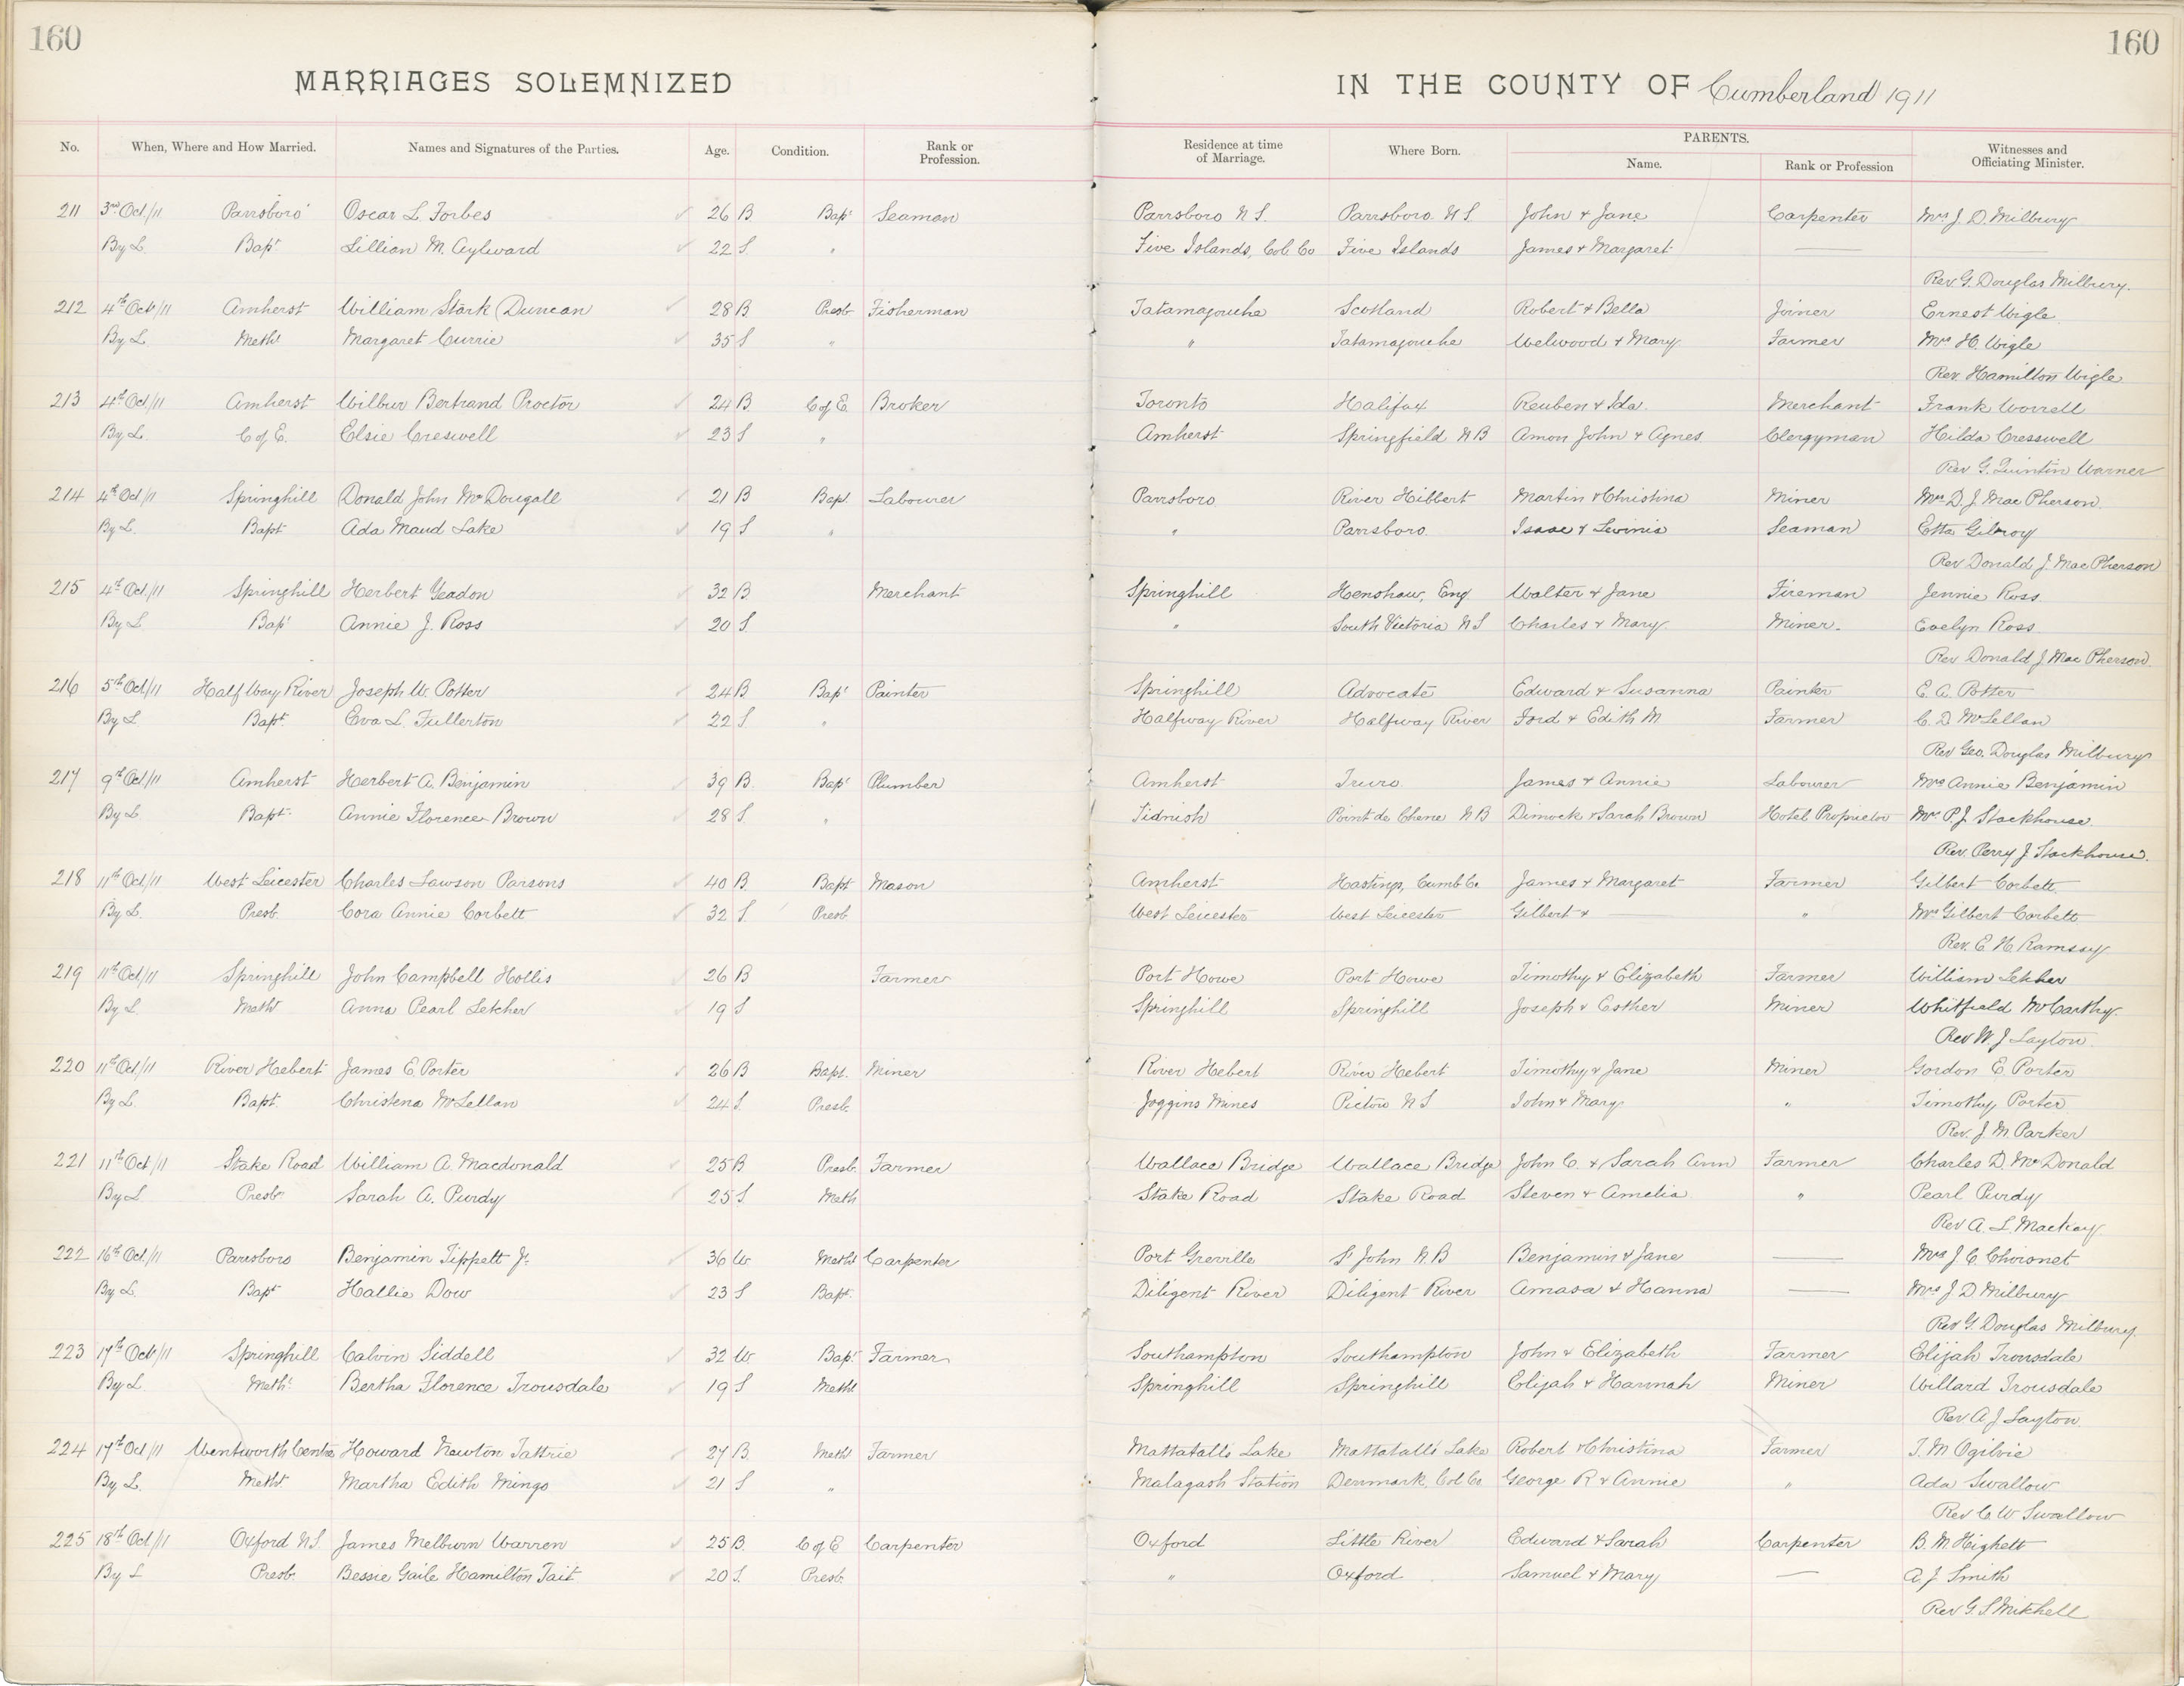 160
160
MARRIAGES SOLEMNIZED
IN THE COUNTY OF Cumberland 1911
No. When, Where and How Married. Names and Signatures of the Parties. Age. Condition. Rank or Profession. Residence at time of Marriage. Where Born. PARENTS. Name. Rank or Profession Witnesses and Officiating Minister.
211 3rd Oct/11 Parrsboro' Oscar L Forbes 26 B Bapt Seaman Parrsboro N S. Parrsboro N S. John & Jane Carpenter Mrs J. D. Milbury
By L. Bapt Lillian M. Aylward 22 S. " Five Islands, Col. Co Five Islands James & Margaret —
Rev G. Douglas Milbury.
212 4th Oct/11 Amherst William Stark Duncan 28 B. Presb Fisherman Tatamagouche Scotland Robert & Bella Joiner Ernest Wigle
By L. Metht Margaret Currie 35 S " " Tatamagouche Welwood & Mary Farmer Mrs H. Wigle
Rev. Hamilton Wigle
213 4th Oct/11 Amherst Wilbur Bertrand Proctor 24 B. C of E. Broker Toronto Halifax Reuben & Ida. Merchant Frank Worrell
By L. C of E. Elsie Creswell 23 S " Amherst Springfield N B Amon John & Agnes Clergyman Hilda Cresswell
Rev G. Quintin Warner
214 4th Oct/11 Springhill Donald John McDougall 21 B Bapt. Labourer Parrsboro River Hibbert Martin & Christina Miner Mrs D. J. MacPherson.
By L. Bapt Ada Maud Lake 19 S " " Parrsboro. Isaac & Levinia Seaman Etta Gilroy
Rev Donald J. MacPherson
215 4th Oct/11 Springhill Herbert Yeadon 32 B Merchant Springhill Henshaw, Eng Walter & Jane Fireman Jennie Ross
By L. Bapt Annie J. Ross 20 S. " South Victoria N S Charles & Mary. Miner. Evelyn Ross
Rev Donald J. MacPherson.
216 5th Oct/11 Half Way River Joseph W. Potter 24 B Bapt Painter Springhill Advocate Edward & Susanna Painter E. A. Potter
By L Bapt. Eva L. Fullerton 22 S. " Halfway River Halfway River Ford & Edith M Farmer C. D. McLellan
Rev Geo. Douglas Milbury
217 9th Oct/11 Amherst Herbert A. Benjamin 39 B. Bapt Plumber Amherst Truro James & Annie Labourer Mrs Annie Benjamin
By L. Bapt. Annie Florence Brown 28 S. " Tidnish Point de Chene N B Dimock & Sarah Brown Hotel Proprietor Mrs P. J. Stackhouse.
Rev. Perry J Stackhouse.
218 11th Oct/11 West Leicester Charles Lawson Parsons 40 B. Bapt Mason Amherst Hastings, Cumb Co James & Margaret Farmer Gilbert Corbett
By L. Presb. Cora Annie Corbett 32 S. Presb West Leicester West Leicester Gilbert & — " Mrs Gilbert Corbett
Rev. E. H. Ramsay
219 11th Oct/11 Springhill John Campbell Hollis 26 B Farmer Port Howe Port Howe Timothy & Elizabeth Farmer William Letcher
By L. Metht Anna Pearl Letcher 19 S Springhill Springhill Joseph & Esther Miner Whitfield McCarthy.
Rev W. J Layton.
220 11th Oct/11 River Hebert James E. Porter 26 B Bapt. Miner River Hebert River Hebert Timothy & Jane Miner Gordon E. Porter
By L. Bapt. Christena McLellan 24 S. Presb. Joggins Mines Pictou N S John & Mary " Timothy Porter
Rev. J. M. Parker
221 11th Oct/11 Stake Road William A. Macdonald 25 B Presb. Farmer Wallace Bridge Wallace Bridge John C. & Sarah Ann Farmer Charles D. McDonald
By L Presbn Sarah A. Purdy 25 S. Meth Stake Road Stake Road Steven & Amelia " Pearl Purdy
Rev A. L. Mackay
222 16th Oct/11 Parrsboro Benjamin Tippett Jr. 36 W. Metht Carpenter Port Greville St John N. B Benjamin & Jane — Mrs J. C. Choisnet
By L. Bapt Hallie Dow 23 S Bapt. Diligent River Diligent River Amasa & Hanna — Mrs J D Milbury
Rev G. Douglas Milbury
223 17th Oct/11 Springhill Calvin Siddell 32 W. Bapt. Farmer Southampton Southampton John & Elizabeth Farmer Elijah Trousdale
By L Metht. Bertha Florence Trousdale 19 S Metht Springhill Springhill Elijah & Hannah Miner Willard Trousdale
Rev A. J. Layton.
224 17th Oct/11 Wentworth Centre Howard Newton Tattrie 27 B. Metht Farmer Mattatall's Lake Mattatall's Lake Robert & Christina Farmer T. M Ogilvie
By L. Metht. Martha Edith Mingo 21 S " Malagash Station Denmark, Col Co. George R & Annie " Ada Swallow
Rev C W Swallow
225 18th Oct/11 Oxford N.S. James Melburn Warren 25 B. C of E Carpenter Oxford Little River Edward & Sarah Carpenter B. M Highett
By L Presb. Bessie Gaile Hamilton Tait 20 S. Presb. " Oxford Samuel & Mary — A. J Smith
Rev G. S Mitchell